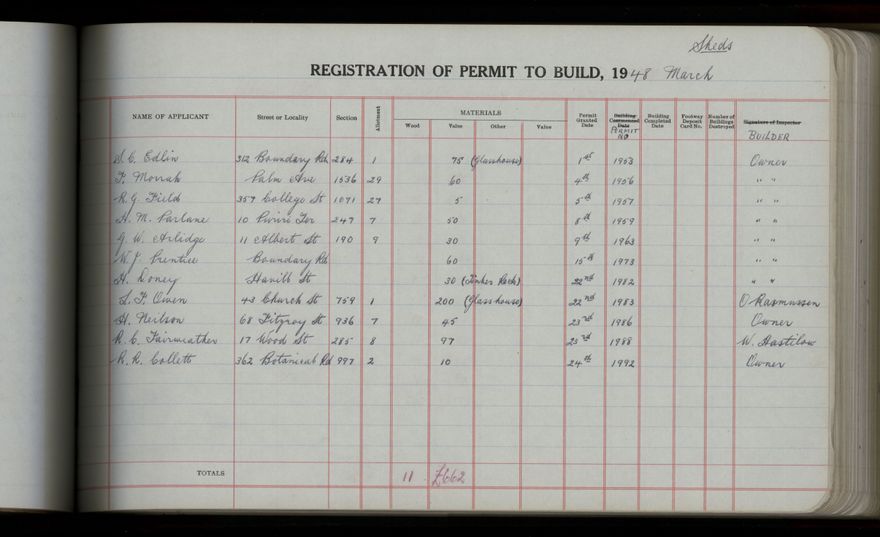 Sheds
REGISTRATION OF PERMIT TO BUILD, 1948 March
NAME OF APPLICANT Street or Locality Section Allotment MATERIALS Wood Value Other Value Permit Granted Date Building Commenced Date PERMIT NO Building Completed Date Footway Deposit Card No. Number of Buildings Destroyed Signature of Inspector BUILDER
S. C. Edlin 312 Boundary Rd 284 1 75 (Glasshouse) 1st 1953 Owner
F. Palm Ave 1536 29 60 4th 1956 " "
R. G. Field 357 College St 1071 27 5 5th 1957 " "
H. M. Parlane 10 Ter 247 7 50 8th 1959 " "
G. W. Arlidge 11 Albert St 190 9 30 9th 1963 " "
W. J. Prentice Boundary Rd 60 15th 1973 " "
H. Doney Havill St 30 (Timber Rack) 22nd 1982 " "
S. F. Owen 43 Church St 759 1 200 (Glasshouse) 22nd 1983 O Rasmussen
H. Neilson 68 Fitzroy St 936 7 45 23rd 1986 Owner
R. C. Fairweather 17 Wood St 285 8 97 23rd 1988 W. Hastilow
R. R. Collett 362 Botanical Rd 997 2 10 24th 1992 Owner
TOTALS 11 £662